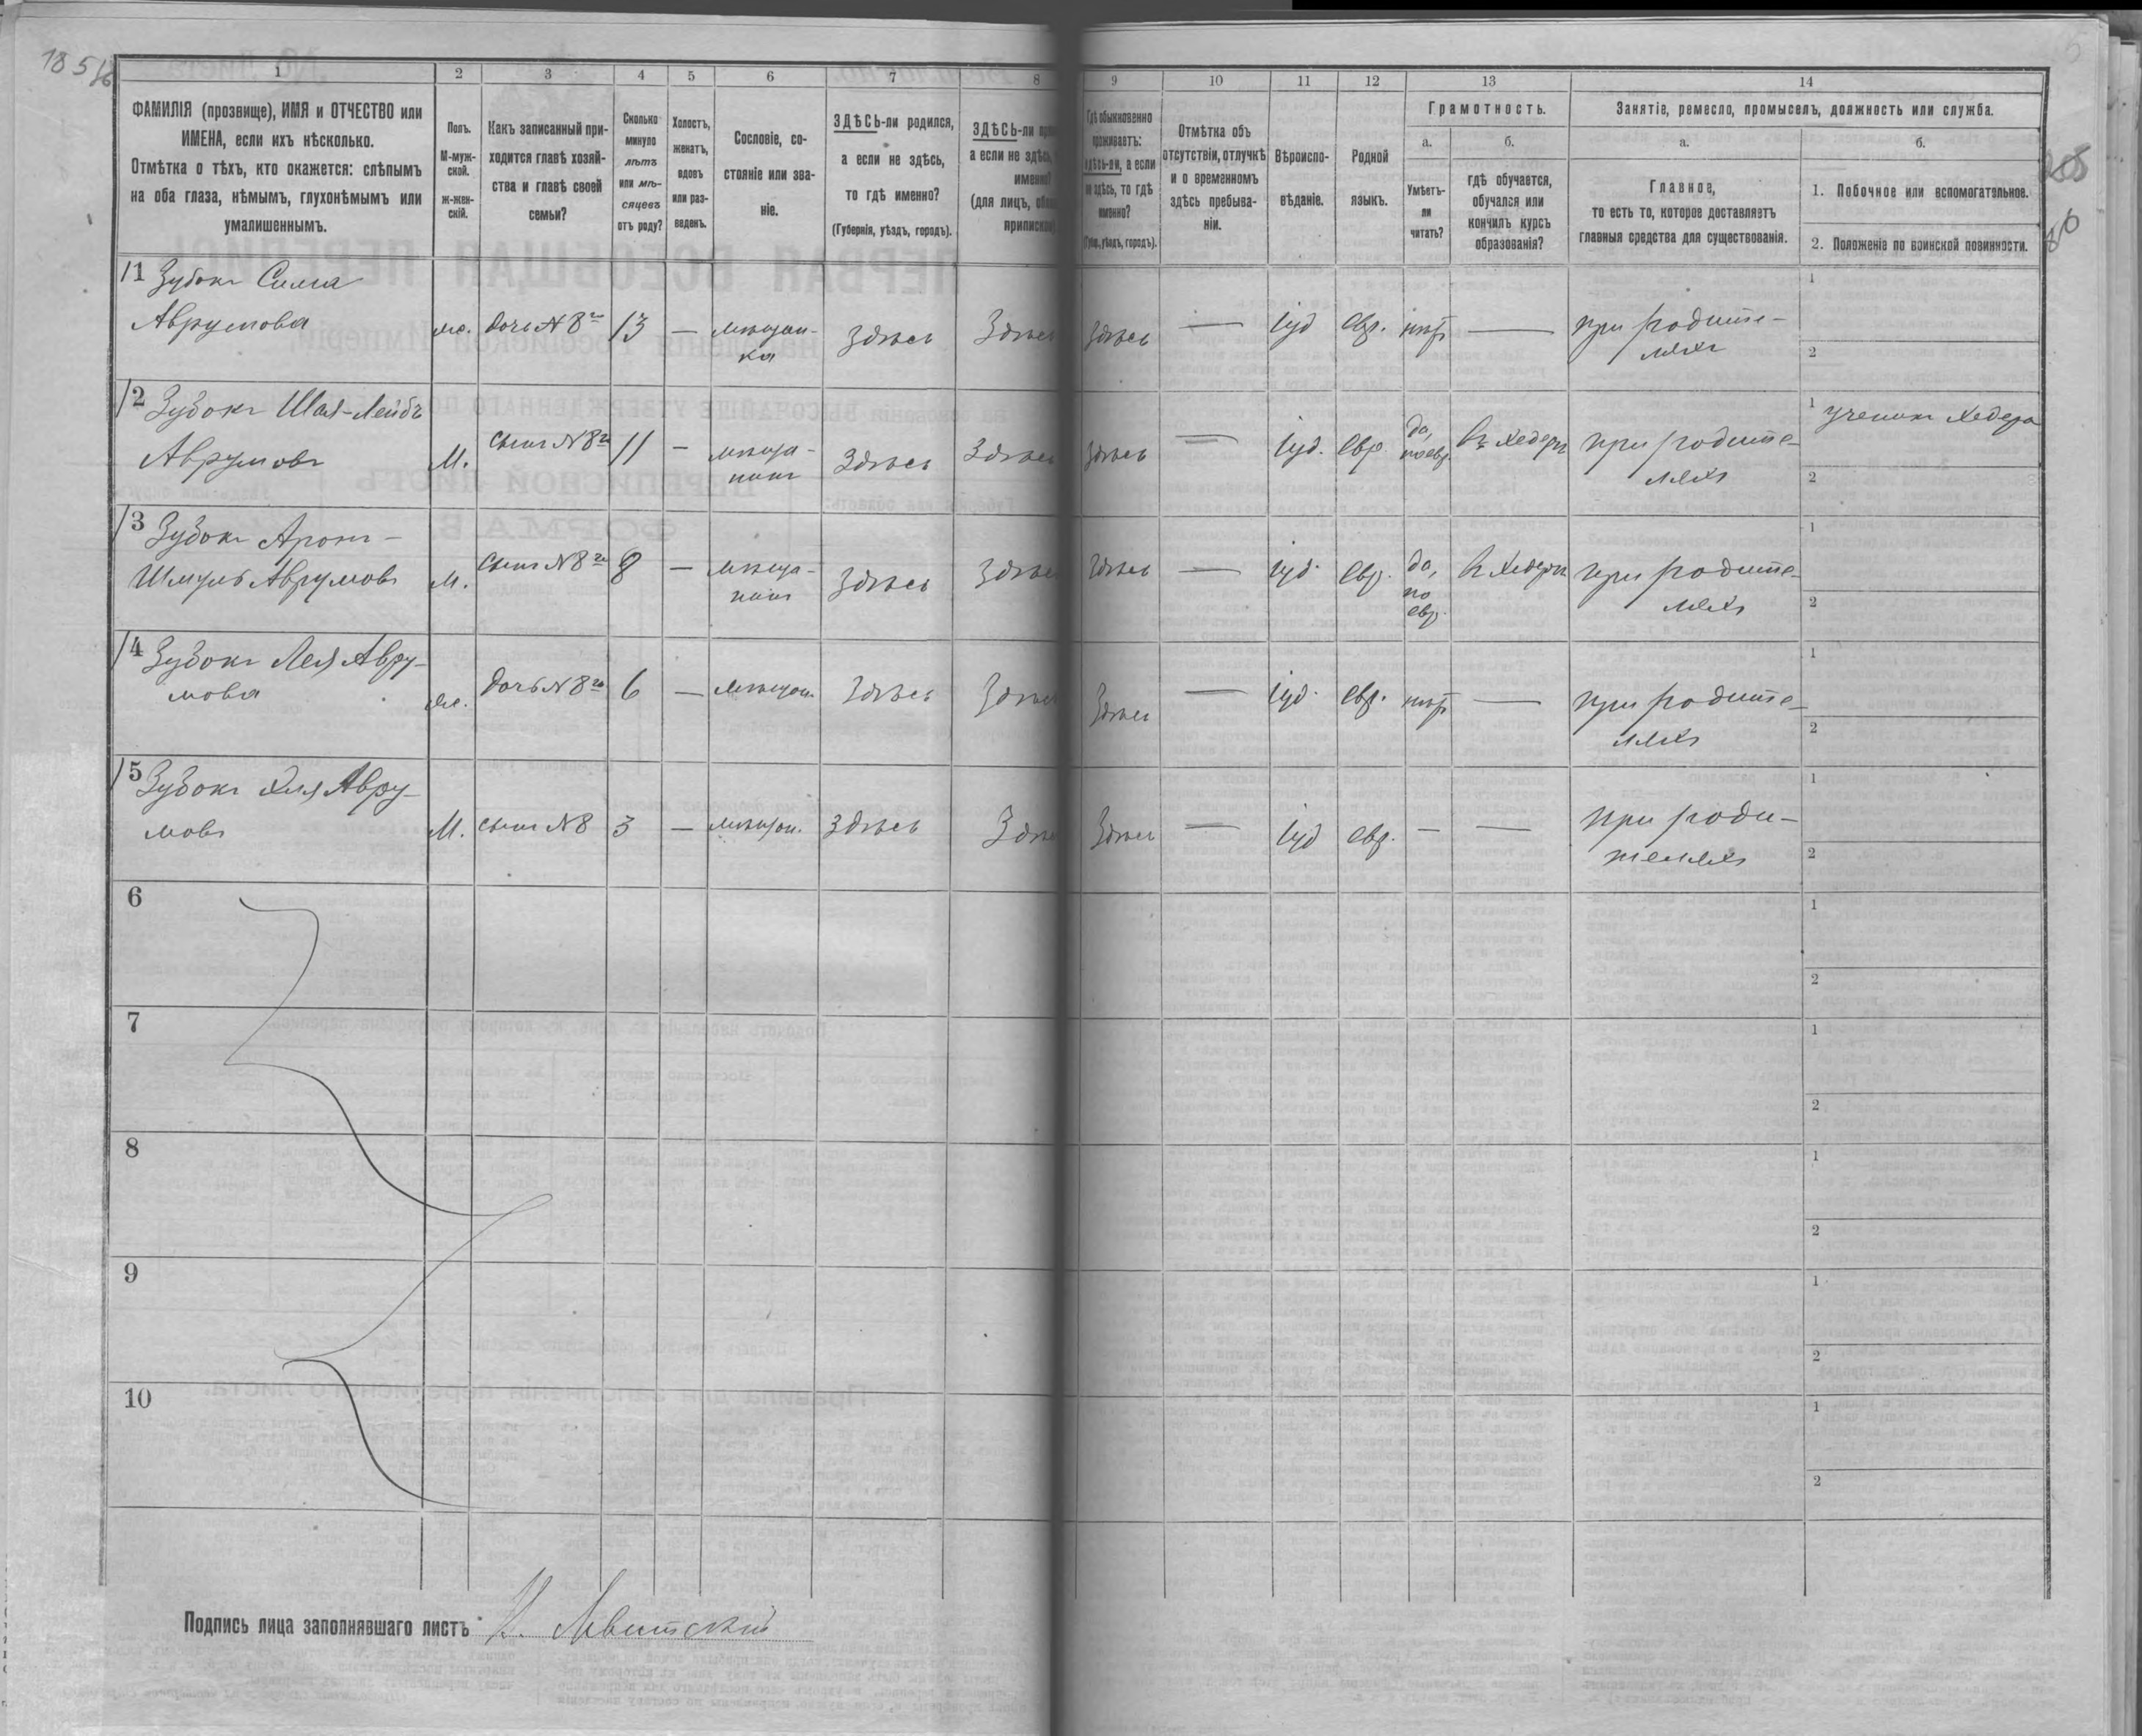 18 5/6
1 2 3 4 5 6 7 8 9 10 11 12 13 14
ФАМИЛІЯ (прозвище), ИМЯ и ОТЧЕСТВО или
ИМЕНА, если ихъ нѣсколько.
Отмѣтка о тѣхъ, кто окажется: слѣпымъ
на оба глаза, нѣмымъ, глухонѣмымъ или
умалишеннымъ.
Полъ.
М-муж-
ской.
ж-жен-
скій.
Какъ записанный при-
ходится главѣ хозяй-
ства и главѣ своей
семьи?
Сколько
минуло
лѣтъ
или мѣ-
сяцевъ
отъ роду?
Холостъ,
женатъ,
вдовъ
или раз-
веденъ.
Сословіе, со-
стояніе или зва-
ніе.
ЗДѢСЬ-ли родился,
а если не здѣсь,
то гдѣ именно?
(Губернія, уѣздъ, городъ).
ЗДѢСЬ-ли
а если не здѣсь,
именно?
(для лицъ,
Гдѣ обыкновенно
проживаетъ:
здѣсь-ли, а если
не здѣсь, то гдѣ
именно?
(Губ., уѣздъ, городъ).
Отмѣтка объ
отсутствіи, отлучкѣ
и о временномъ
здѣсь пребыва-
ніи.
Вѣроиспо-
вѣданіе.
Родной
языкъ.
Грамотность.
а.
Умѣетъ-
ли
читать?
б.
гдѣ обучается,
обучался или
кончилъ курсъ
образованія?
Занятіе, ремесло, промыселъ, должность или служба.
а.
Главное,
то есть то, которое доставляетъ
главныя средства для существованія.
б.
1. Побочное или вспомогательное.
2. Положеніе по воинской повинности.
/1 Зубокъ Сима
Аврумова
ж. дочь №8го 13 — мѣщан-
ка
здѣсь Здѣсь здѣсь — Іуд евр. нѣт — при родите-
ляхъ
1
2
/2 Зубокъ Шая-Лейбъ
Аврумовъ
М. сынъ №8го 11 — мѣща-
нинъ
Здѣсь Здѣсь здѣсь — Іуд. Евр. да,
по евр.
въ хедерѣ при родите-
ляхъ
1 ученикъ хедера
2
/3 Зубокъ Аронъ-
Шмуль Аврумовъ
М. сынъ №8го 8 — мѣща-
нинъ
Здѣсь Здѣсь Здѣсь — Іуд. евр. да,
по
евр.
въ хедерѣ при родите-
ляхъ
1
2
/4 Зубокъ Лея Авру-
мова
ж. дочь №8го 6 — мѣщан. Здѣсь Здѣсь Здѣсь — Іуд. евр. нѣт — при родите-
ляхъ
1
2
/5 Зубокъ Хая Авру-
мовъ
М. сынъ №8 3 — мѣщан. здѣсь Здѣсь Здѣсь — Іуд евр. — — при роди-
теляхъ
1
2
6
1
2
7
1
2
8
1
2
9
1
2
10
1
2
Подпись лица заполнявшаго листъ